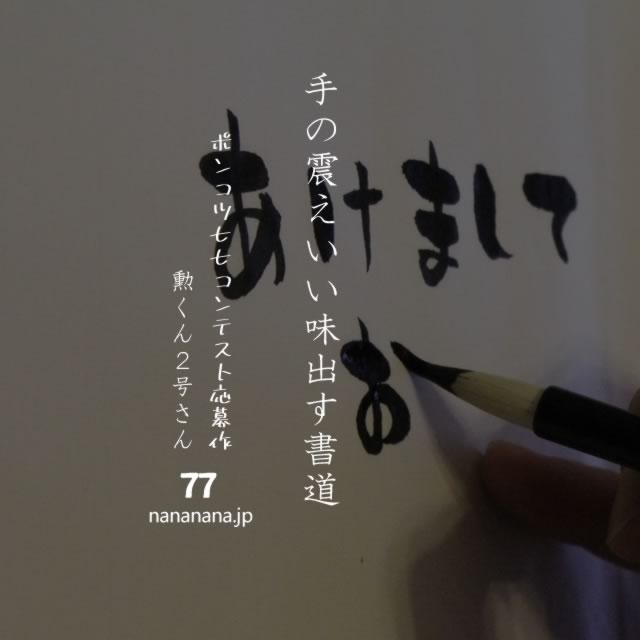 手の震えいい味出す書道
ポンコツ七七コンテスト応募作
勲くん２号さん
77
nananana.jp
あけまして
お